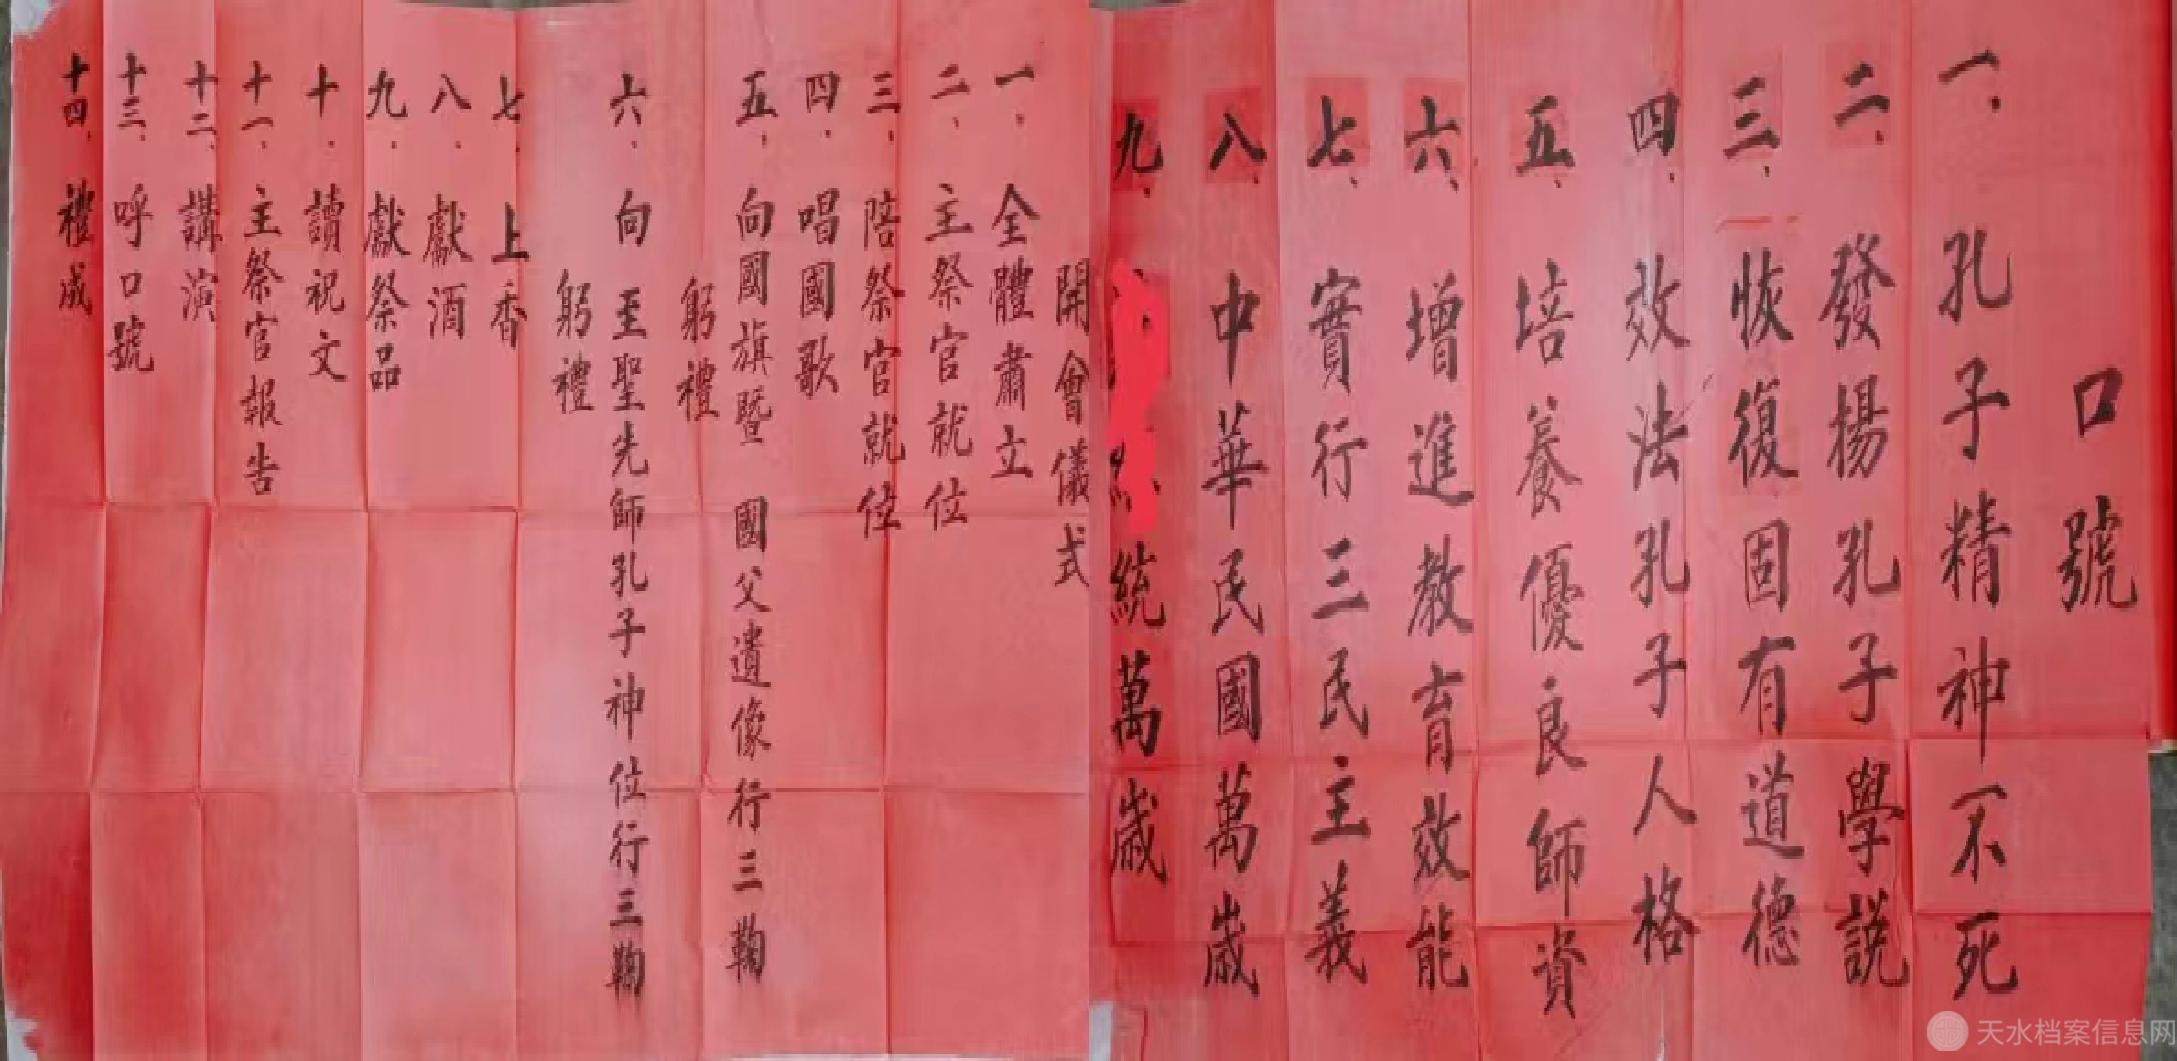 口號
一、孔子精神不死
二、發揚孔子學説
三、恢復固有道德
四、效法孔子人格
五、培養優良師資
六、增進教育效能
七、實行三民主義
八、中華民國萬歲
九、統萬歲
開會儀式
一、全體肅立
二、主祭官就位
三、陪祭官就位
四、唱國歌
五、向國旗暨 國父遺像行三鞠
躬禮
六、向至聖先師孔子神位行三鞠
躬禮
七、上香
八、獻酒
九、獻祭品
十、讀祝文
十一、主祭官報告
十二、講演
十三、呼口號
十四、禮成
天水档案信息网